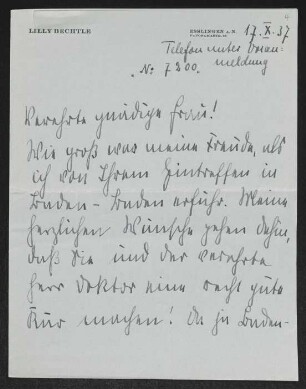 LILLY BECHTLE
ESSLINGEN a.N. 17. X. 37
Telefon unter Voran-
meldung
No 7200.
Verehrte gnädige Frau!
Wie groß war meine Freude, als
ich von Ihrem Eintreffen in
Baden-Baden erfuhr. Meine
herzlichen Wünsche gehen dahin,
daß Sie und der verehrte
Herr Doktor eine recht gute
Kur machen! Da ja Baden-